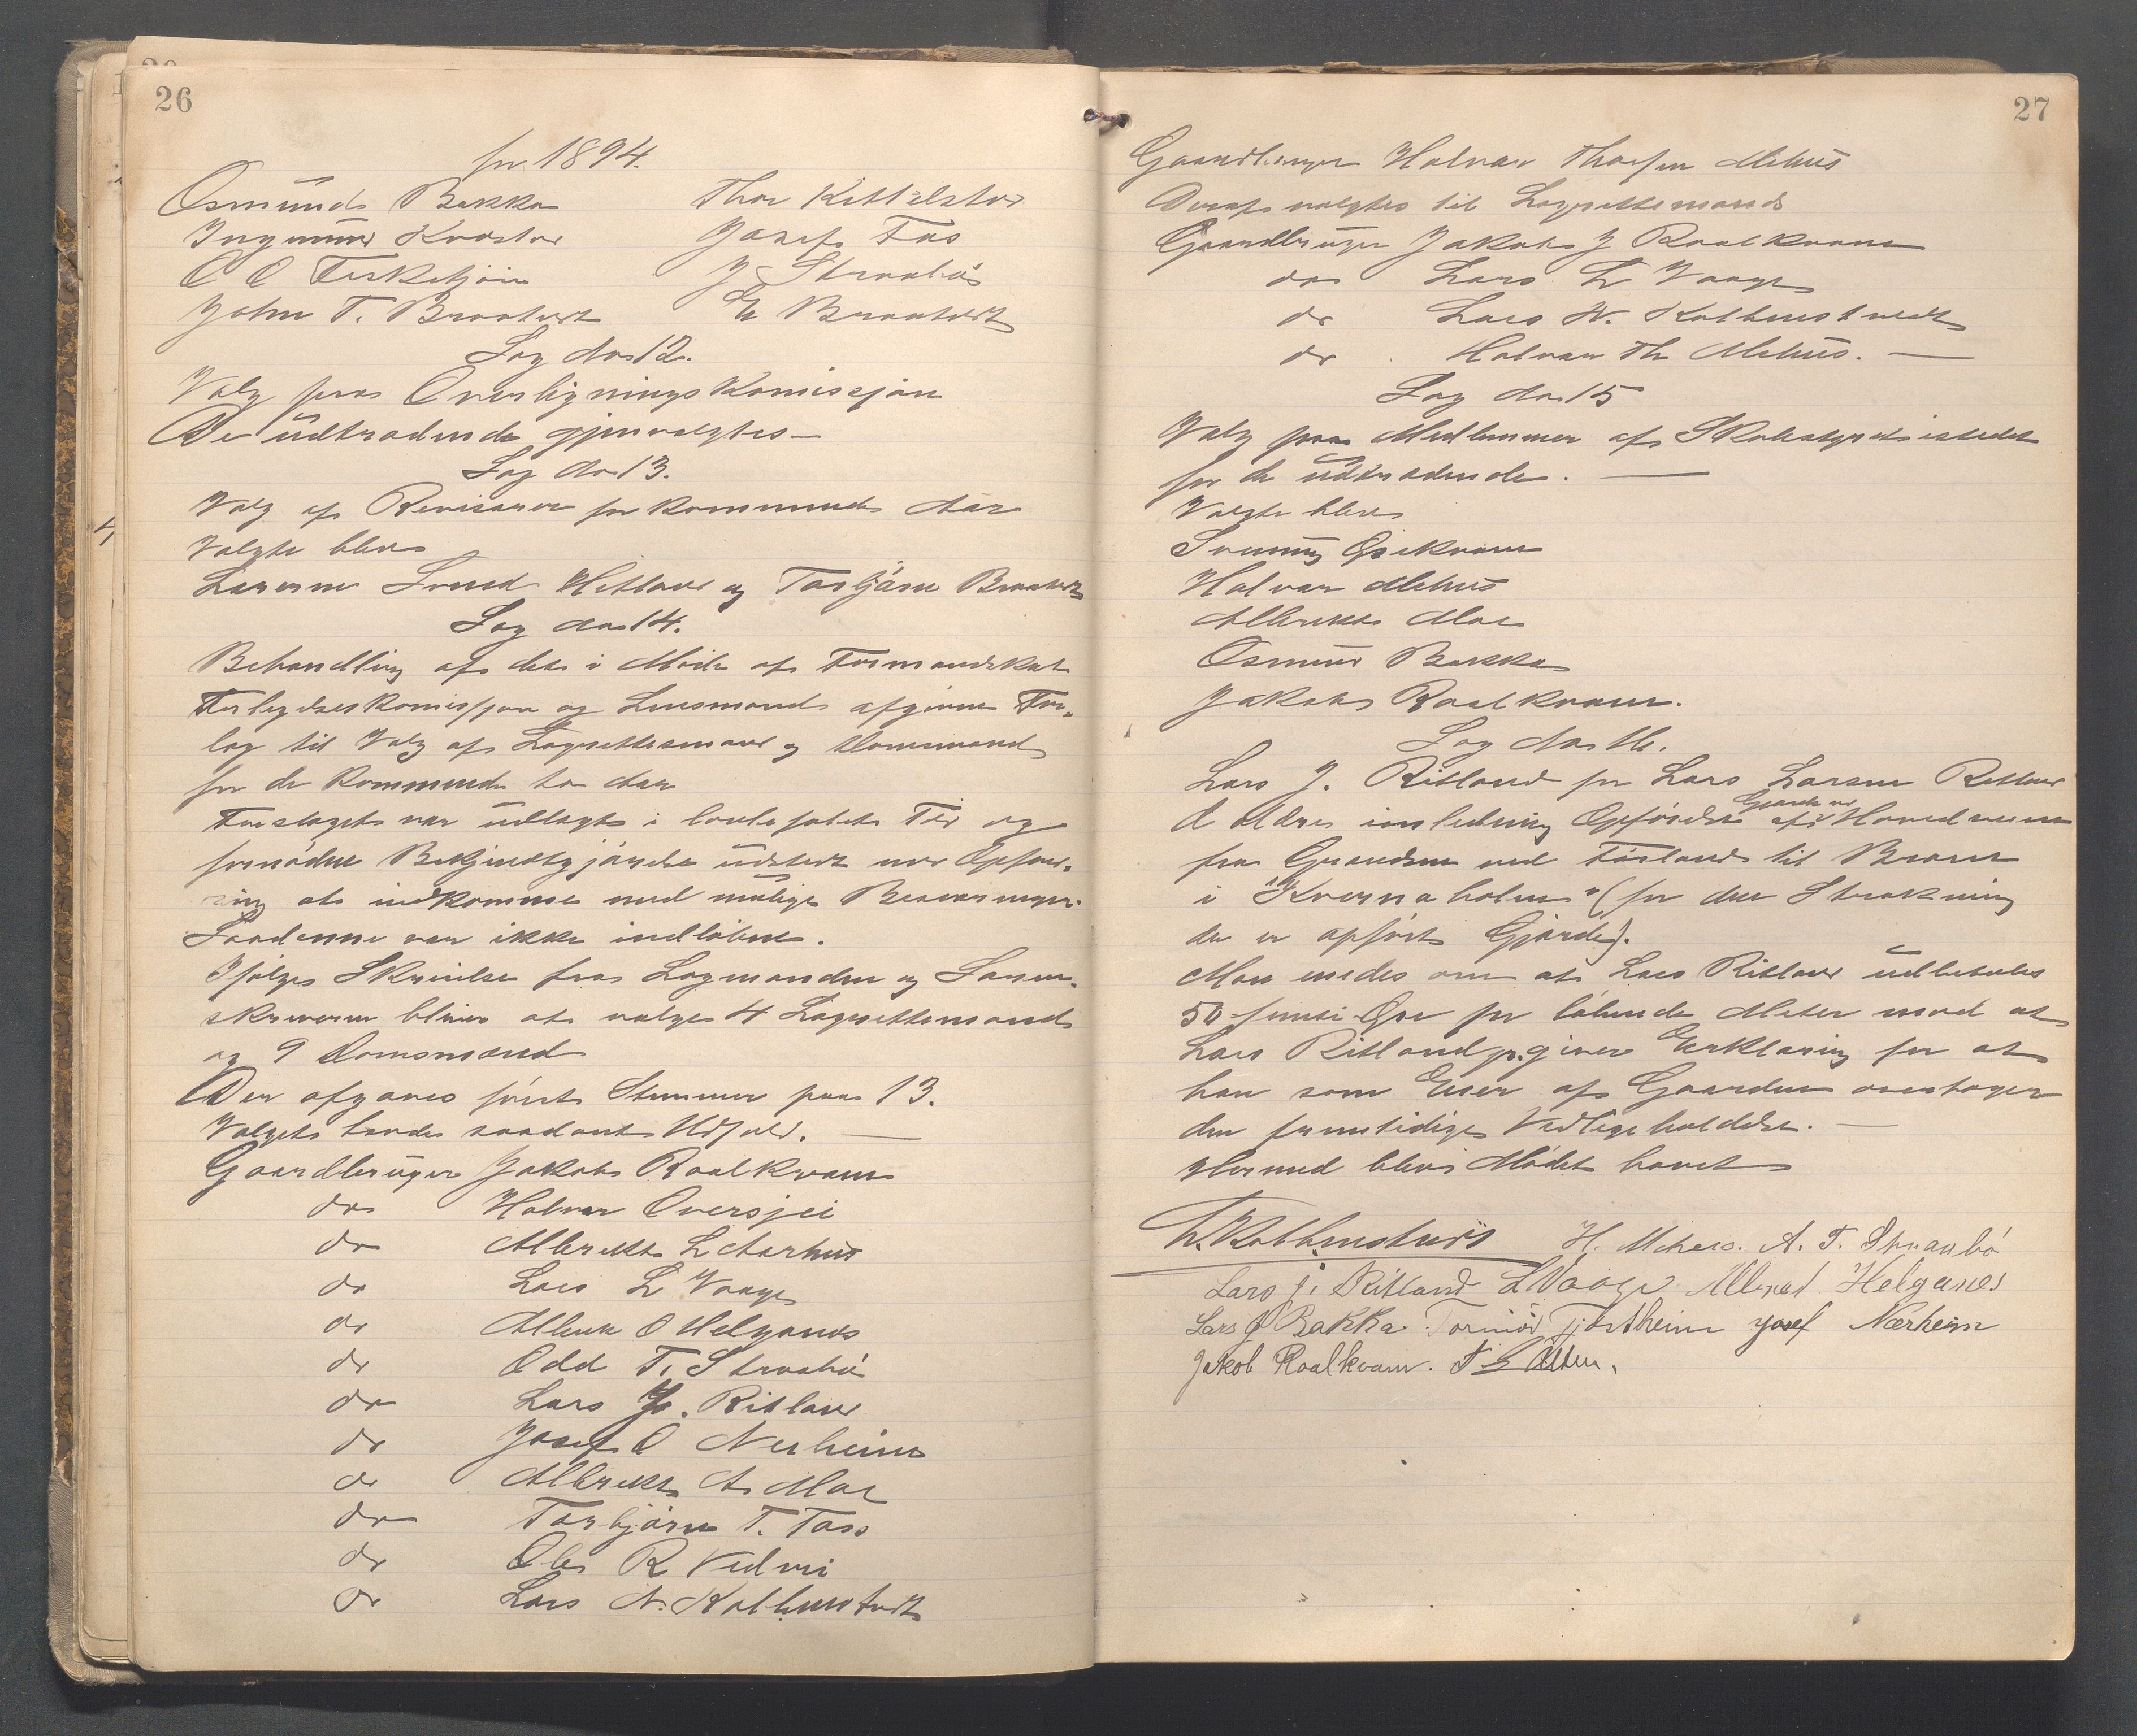 26
for 1894.
Osmund Bakka Thor Kittelstvd
Ingmund Kvastad Josef Fas
O O Ferketjøn J Straabø
John T. Braatvedt E Braatvedt
Sag No 12.
Valg paa Overligningskomissjon
De udtrædende gjenvalgtes—
Sag No 13.
Valg af Revisorer for kommende Aar
Valgte blev
Lærerne Svend Hetland og Torbjørn Braatvedt
Sag No 14.
Behandling af det i Møde af Formandskab
Forligelseskomissjon og Lensmand afgivne For-
lag til Valg af Lagrettesmænd og Domsmænd
for de kommende to Aar
Forslaget var udlagt i lovbefalet Tid og
fornøden Bekjendtgjørelse udstedt med Opford-
ring at indkomme med mulige Bemærkninger.
Saadanne var ikke indløbne.
Ifølge Skrivelse fra Lagmanden og Soren-
skriveren bliver at vælge 4 Lagrettemænd
og 9 Domsmænd
Der afgaves først Stemmer paa 13.
Valget havde saadant Udfald. —
Gaardbruger Jakob Raalkvam
do Halvar Oversjei
do Albrekt L Aarhus
do Lars L Vaage
do Albrik O Helganes
do Odd T. Straabø
do Lars J. Ritland
do Josef O Nerheim
do Albrekt A. Moe
do Torbjørn T. Tors
do Ole R Vedvei
do Lars N. Kolbenstvedt
27
Gaardbruger Halvar Thorsen Mehus
Deraf valgtes til Lagrettemænd
Gaardbruger Jakob J Raalkvam
do Lars L Vaage
do Lars N. Kolbenstvedt
do Halvar Th Mehus. —
Sag No 15
Valg paa Medlemmer af Skolestyret istedet
for de udtrædende. —
Valgte blev
Sveinung Østkvam
Halvar Mehus
Albrekt Moe
Osmund Bakka
Jakob Raalkvam.
Sag No 16.
Lars J. Ritland for Lars Larsen Ritland
d Ældres indledning Opførelse af Gjærde ved Hovedveien
fra Grændsen ved Førland til Broen
i "Kvernaholen" (for den Strækning
der er opført Gjærde).
Man enedes om at Lars Ritland udbetales
50 femti Øre pr løbende Meter mod at
Lars Ritland p. giver Erklæring for at
han som Eier af Gaarden overtager
den fremtidige Vedligeholdelse. —
Hermed blev Mødet hævet
L. Kolbenstvedt H. Mehus. A. T. Straabø
Lars J. Ritland L Vaage Albret Helganes
Lars J Bakka Tormod Tjøstheim Josef Nærheim
Jakob Raalkvam.